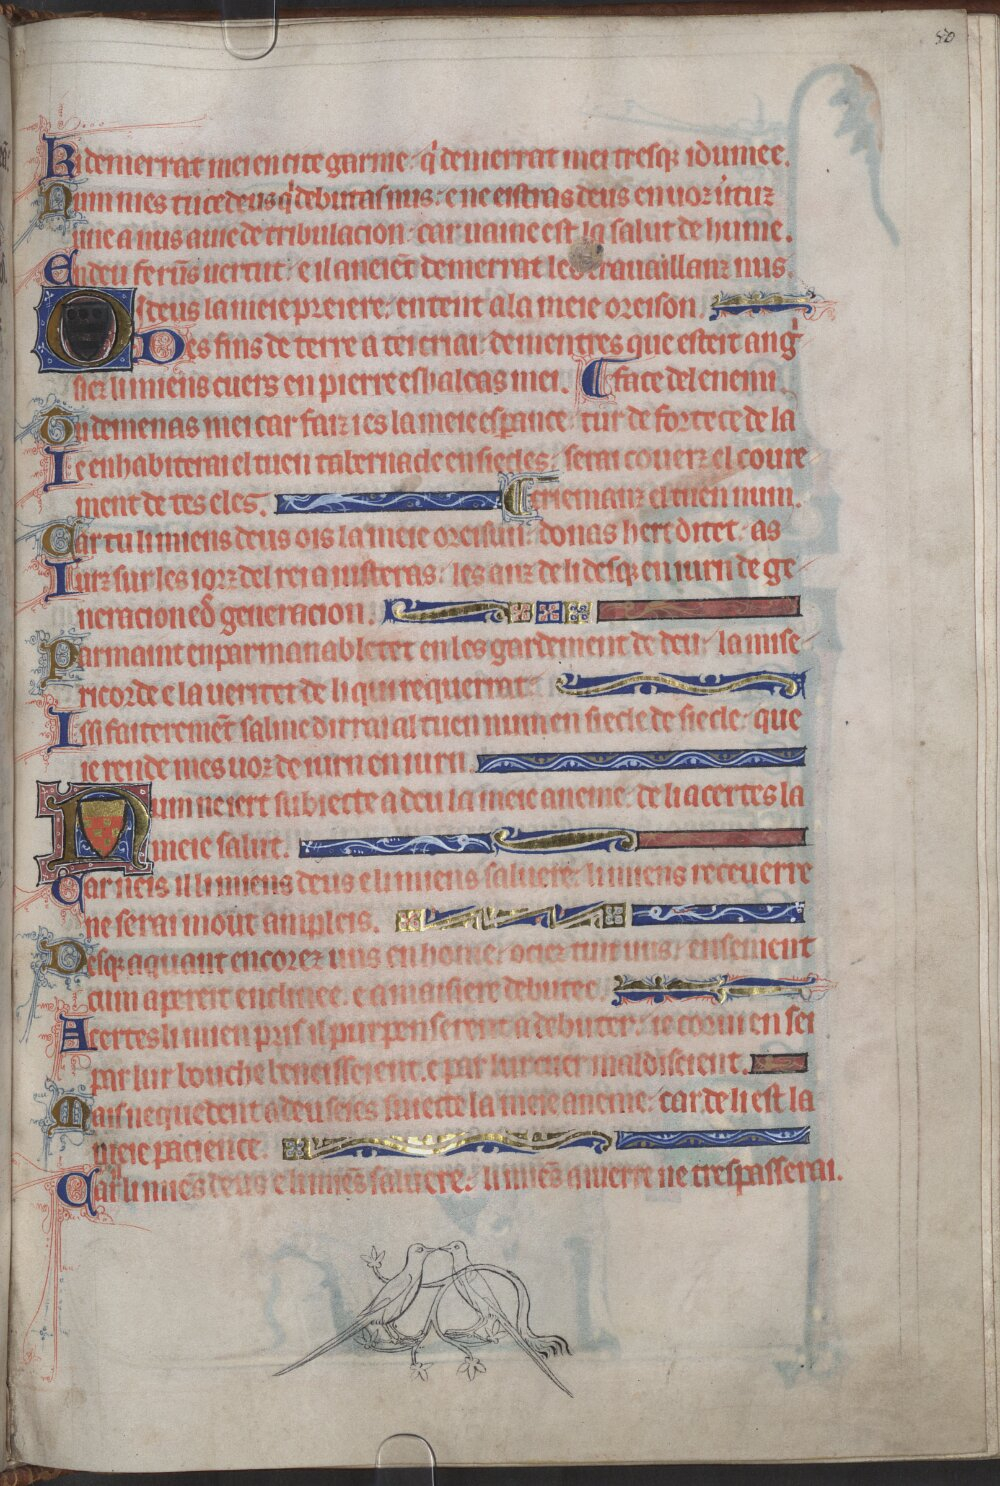 50
Ki demerrat mei en cite garnie: q̉ demerrat mei tresq; idumee.
Dum nies tu cedeus q̉ debutas nus: e ne eistras deus en uoz ũtuz
une a nus auie de tribulacion: car uaine est la salut de hume.
En deu ferũs uertut: e il aneient demerrat les trauaillanz nus.
O ideus la meie preiere: entent a la meie oreison.
Des fins de terre a tei criai: dementres que esteit ang̉
siez li miens cuers en pierre eshalcas mei. E face del enemi.
Tu demenas mei car faiz ies la meie esperance: tur de fortece de la
Ie enhabiterai el tuen tabernacle en siecles: serai couerz el coure
ment de tes eles. E criemanz el tuen num.
Car tu li miens deus ois la meie oreisun: donas heredited as
Iurz sur les iorz del rei aiusteras: les anz de li desq; en iurn de ge
neracion e đ generacion.
Parmaint en parmanabletet en les gardement de deu: la mise
ricorde e la ueritet de li qui requerrat:
Issi faiterement salme dirrai al tuen num en siecle de siecle: que
ie rende mes uoz de iurn en iurn.
Dum ne iert subiecte a deu la meie aneme: de li acertes la
meie salut.
Car neis il li miens deus e li miens saluere: li miens receuerre
ne serai mout ampleis.
Desq; a quant encorez uus en home: ociez tuit uus: ensement
cum a pareit enclinee. e a maisiere debutee.
Acertes li mien pris il purpenserent a debuter: ie corui en sei
par lur bouche beneisseient. e par lur cuer maldiseient.
Mais nequedent a deu seies suiecte la meie aneme: car de li est la
meie pacience.
Car li miẽs deus e li miẽs saluere: li miẽs aiuerre ne trespasserai.